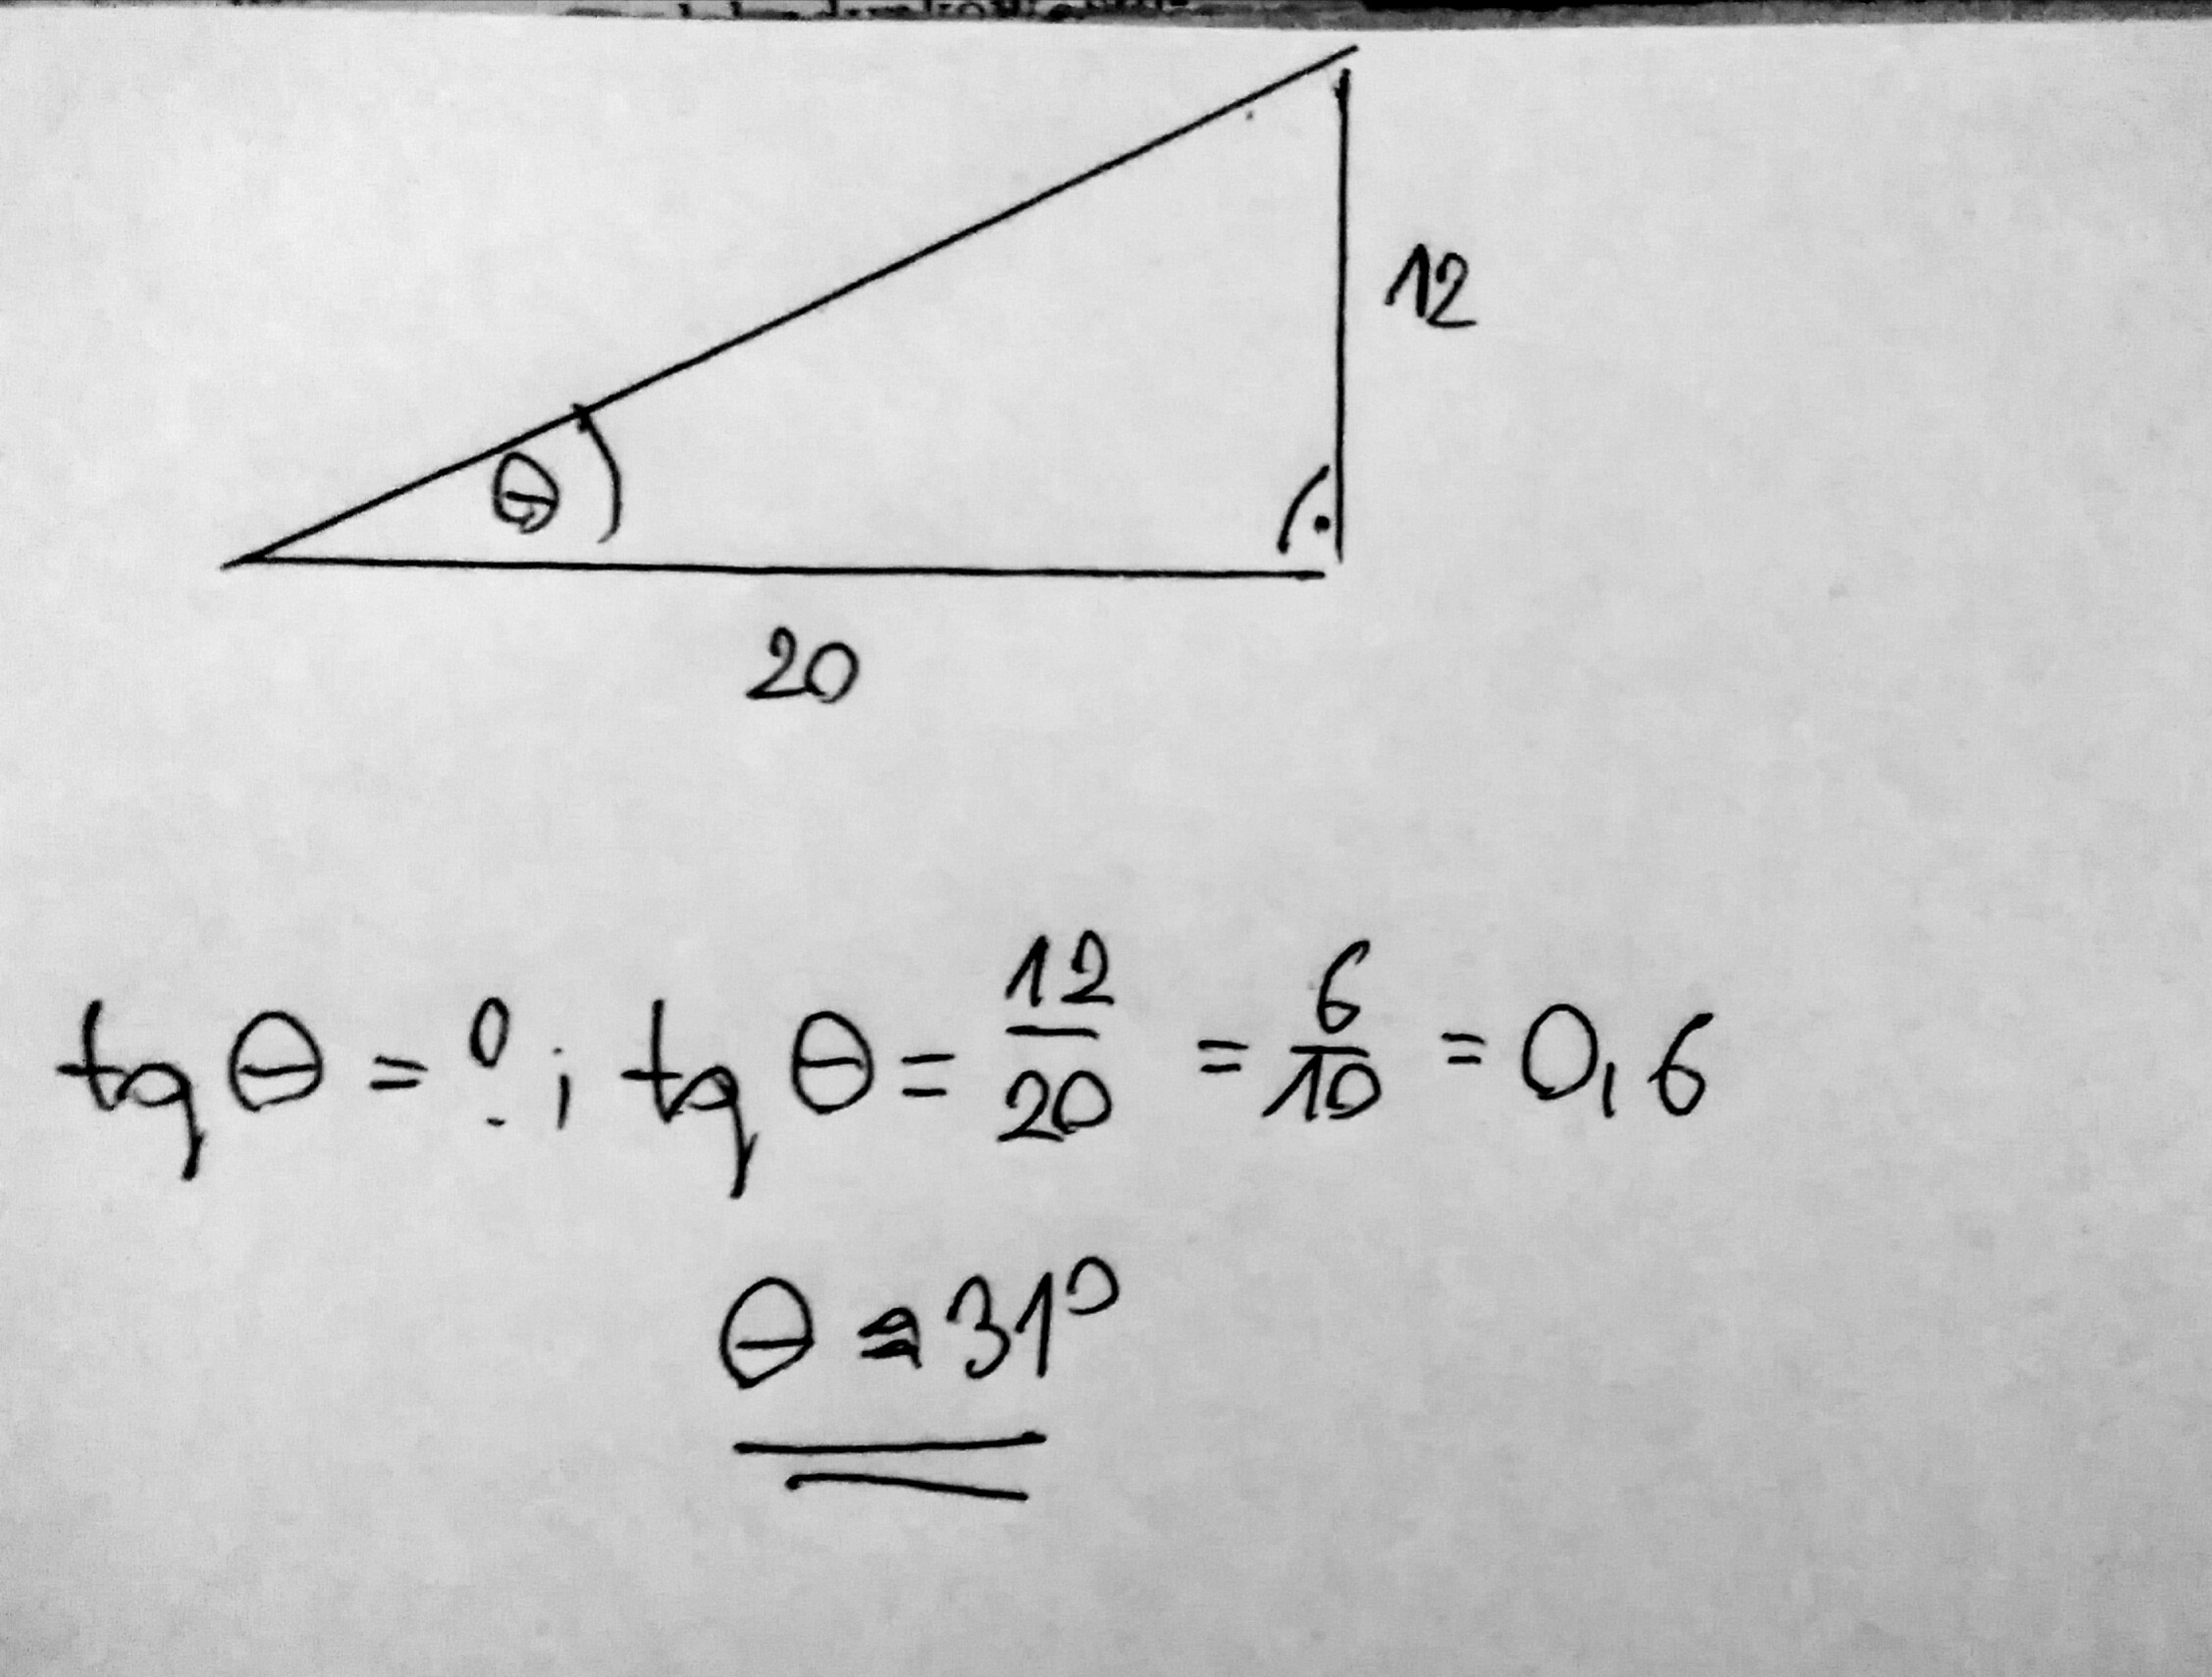 12
Θ
20
tg Θ = ? ; tg Θ = 12/20 = 6/10 = 0,6
Θ ≈ 31°